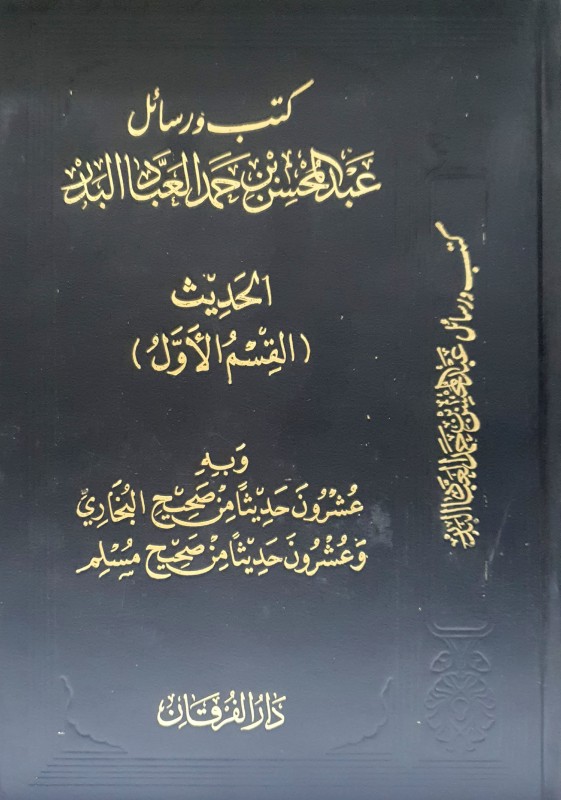 كتب ورسائل
عَبْدُ المُحْسِنِ بْنِ حَمَد العَبَّاد البَدْر
الحَدِيْث
(القِسْمُ الأَوَّلُ)
وَبِهِ
عُشْرُونَ حَدِيْثًا مِنْ صَحِيْحِ البُخَارِيِّ
وَعُشْرُونَ حَدِيْثًا مِنْ صَحِيْحِ مُسْلِم
دَارُ الفُرْقَانِ
كتب ورسائل عَبْدُ المُحْسِنِ بْنِ حَمَد العَبَّاد البَدْر